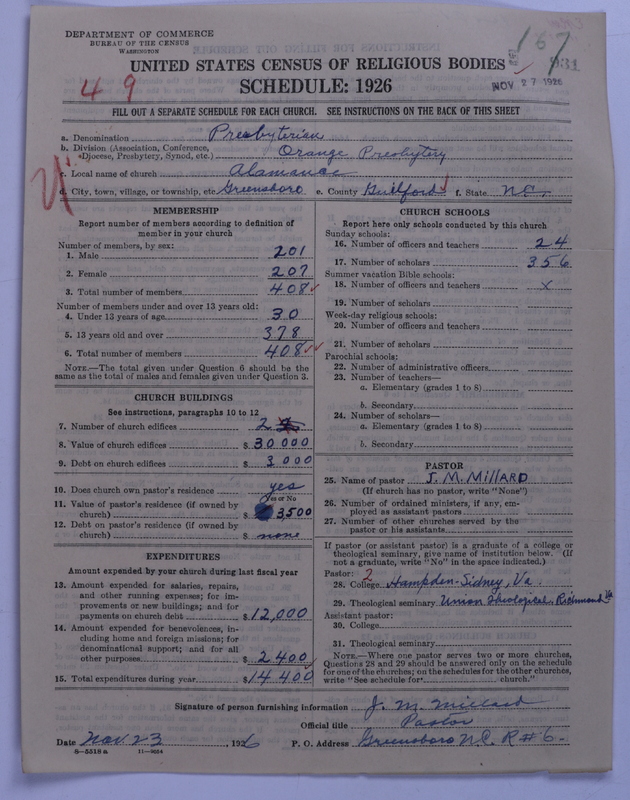 DEPARTMENT OF COMMERCE
BUREAU OF THE CENSUS
WASHINGTON
UNITED STATES CENSUS OF RELIGIOUS BODIES
SCHEDULE: 1926
4 9
167
931
NOV 27 1926
FILL OUT A SEPARATE SCHEDULE FOR EACH CHURCH. SEE INSTRUCTIONS ON THE BACK OF THIS SHEET
a. Denomination Presbyterian
b. Division (Association, Conference, Diocese, Presbytery, Synod, etc.) Orange Presbytery
c. Local name of church Alamance
d. City, town, village, or township, etc. Greensboro e. County Guilford f. State N.C.
MEMBERSHIP
Report number of members according to definition of
member in your church
Number of members, by sex:
1. Male 201
2. Female 207
3. Total number of members 408
Number of members under and over 13 years old:
4. Under 13 years of age 30
5. 13 years old and over 378
6. Total number of members 408
NOTE.—The total given under Question 6 should be the
same as the total of males and females given under Question 3.
CHURCH BUILDINGS
See instructions, paragraphs 10 to 12
7. Number of church edifices 2
8. Value of church edifices $30000
9. Debt on church edifices $ 3000
10. Does church own pastor's residence yes
Yes or No
11. Value of pastor's residence (if owned by
church) $ 3500
12. Debt on pastor's residence (if owned by
church) $ none
EXPENDITURES
Amount expended by your church during last fiscal year
13. Amount expended for salaries, repairs,
and other running expenses; for im-
provements or new buildings; and for
payments on church debt $12,000
14. Amount expended for benevolences, in-
cluding home and foreign missions; for
denominational support; and for all
other purposes $ 2400
15. Total expenditures during year $14400
CHURCH SCHOOLS
Report here only schools conducted by this church
Sunday schools:
16. Number of officers and teachers 24
17. Number of scholars 356
Summer vacation Bible schools:
18. Number of officers and teachers x
19. Number of scholars
Week-day religious schools:
20. Number of officers and teachers
21. Number of scholars
Parochial schools:
22. Number of administrative officers
23. Number of teachers—
a. Elementary (grades 1 to 8)
b. Secondary
24. Number of scholars—
a. Elementary (grades 1 to 8)
b. Secondary
PASTOR
25. Name of pastor J. M. MILLARD
(If church has no pastor, write "None")
26. Number of ordained ministers, if any, em-
ployed as assistant pastors
27. Number of other churches served by the
pastor or his assistants
If pastor (or assistant pastor) is a graduate of a college or
theological seminary, give name of institution below. (If
not a graduate, write "No" in the space indicated.)
Pastor: 2
28. College Hampden-Sidney, Va.
29. Theological seminary Union Theological, Richmond Va
Assistant pastor:
30. College
31. Theological seminary
NOTE.—Where one pastor serves two or more churches,
Questions 28 and 29 should be answered only on the schedule
for one of the churches; on the schedules for the other churches,
write "See schedule for church."
Signature of person furnishing information J. M. Millard
Official title Pastor
Date Nov. 23, 1926 P. O. Address Greensboro N.C. R#6.
8—5518 a 11—9064